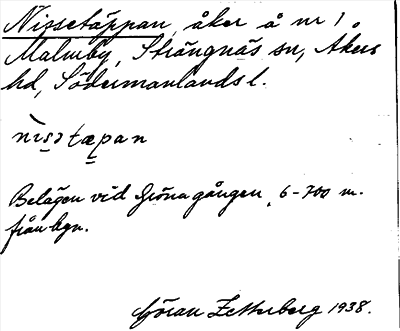 Nissetäppan, åker å nr 1
Malmby, Strängnäs sn, Åkers
hd, Södermanlands l.
nisətæpan
Belägen vid Gröna gången, 6-700 m.
från byn.
Göran Zetterberg 1938.